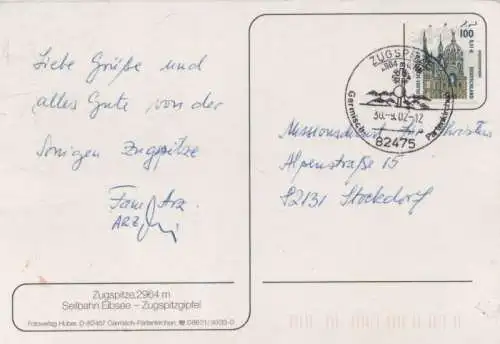 Liebe Grüße und
alles Gute von der
sonigen Zugspitze
Fam. Arz
ARZ
Zugspitze, 2964 m
Seilbahn Eibsee – Zugspitzgipfel
Fotoverlag Huber, D-82467 Garmisch-Partenkirchen ☎ 08821/
100
0,51 €
DEUTSCHLAND
ZUGSPITZE
2964 m
30.-9.02-12
82475
Garmisch-Partenkirchen
für Christus
Alpenstraße 15
82131 Stockdorf